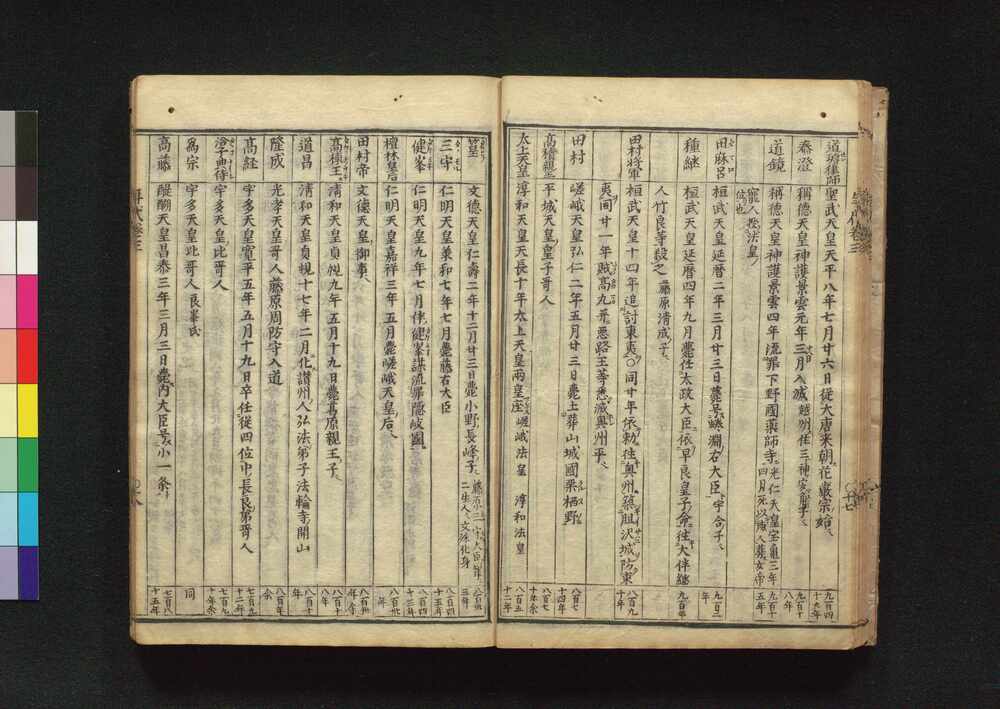 道璿律師 聖武天皇天平八年七月廿六日從大唐来朝花嚴宗始 九百四十九年
泰澄 稱德天皇神護景雲元年三月入滅越州住三神安角子 九百十八年
道鏡 稱德天皇神護景雲四年流罪下野國藥師寺 光仁天皇宝龜三年四月死以庶人葬女帝
寵人授法皇位也 九百十五年
田麻呂 桓武天皇延曆二年三月廿三日薨号蜷淵右大臣宇合子 九百三年
種継 桓武天皇延曆四年九月薨任太政大臣依早良皇子命往大伴継
人竹良等殺之 藤原清成子
田村將軍 桓武天皇十四年追討東夷〇同廿年依勅往奥州築胆沢城防東
夷同廿一年賊高丸并悪路王等悉滅奥州平 八百九十年
田村 嵯峨天皇弘仁二年五月廿三日薨土葬山城國栗栖野 八百七十四年
高橋親王 平城天皇皇子哥人 八百七十年余
太上天皇 淳和天皇天長十年太上天皇両皇座 嵯峨法皇 淳和法皇 八百五十二年
篁 文德天皇仁壽二年十二月廿三日薨小野長峰子 二生人文珠化身
三守 仁明天皇承和七年七月薨藤右大臣 八百四十五年
健峯 仁明天皇九年七月伴健峯謀流罪隠岐國 八百四十三年
檀林皇后 仁明天皇嘉祥三年五月薨嵯峨天皇后
田村帝 文德天皇御事
高棟王 清和天皇貞観九年五月十九日薨葛原親王子 八百十八年
道昌 清和天皇貞観十七年二月化讃州人弘法弟子法輪寺開山 八百十年
隆成 光孝天皇哥人藤原周防守入道 八百年余
高経 宇多天皇寛平五年五月十九日卒任從四位中長良第哥人 七百九十二年
洽子典侍 宇多天皇比哥人 七百九十年余
為宗 宇多天皇比哥人 良峯氏 同
高藤 醍醐天皇昌泰三年三月三日薨内大臣号小一条 七百八十五年